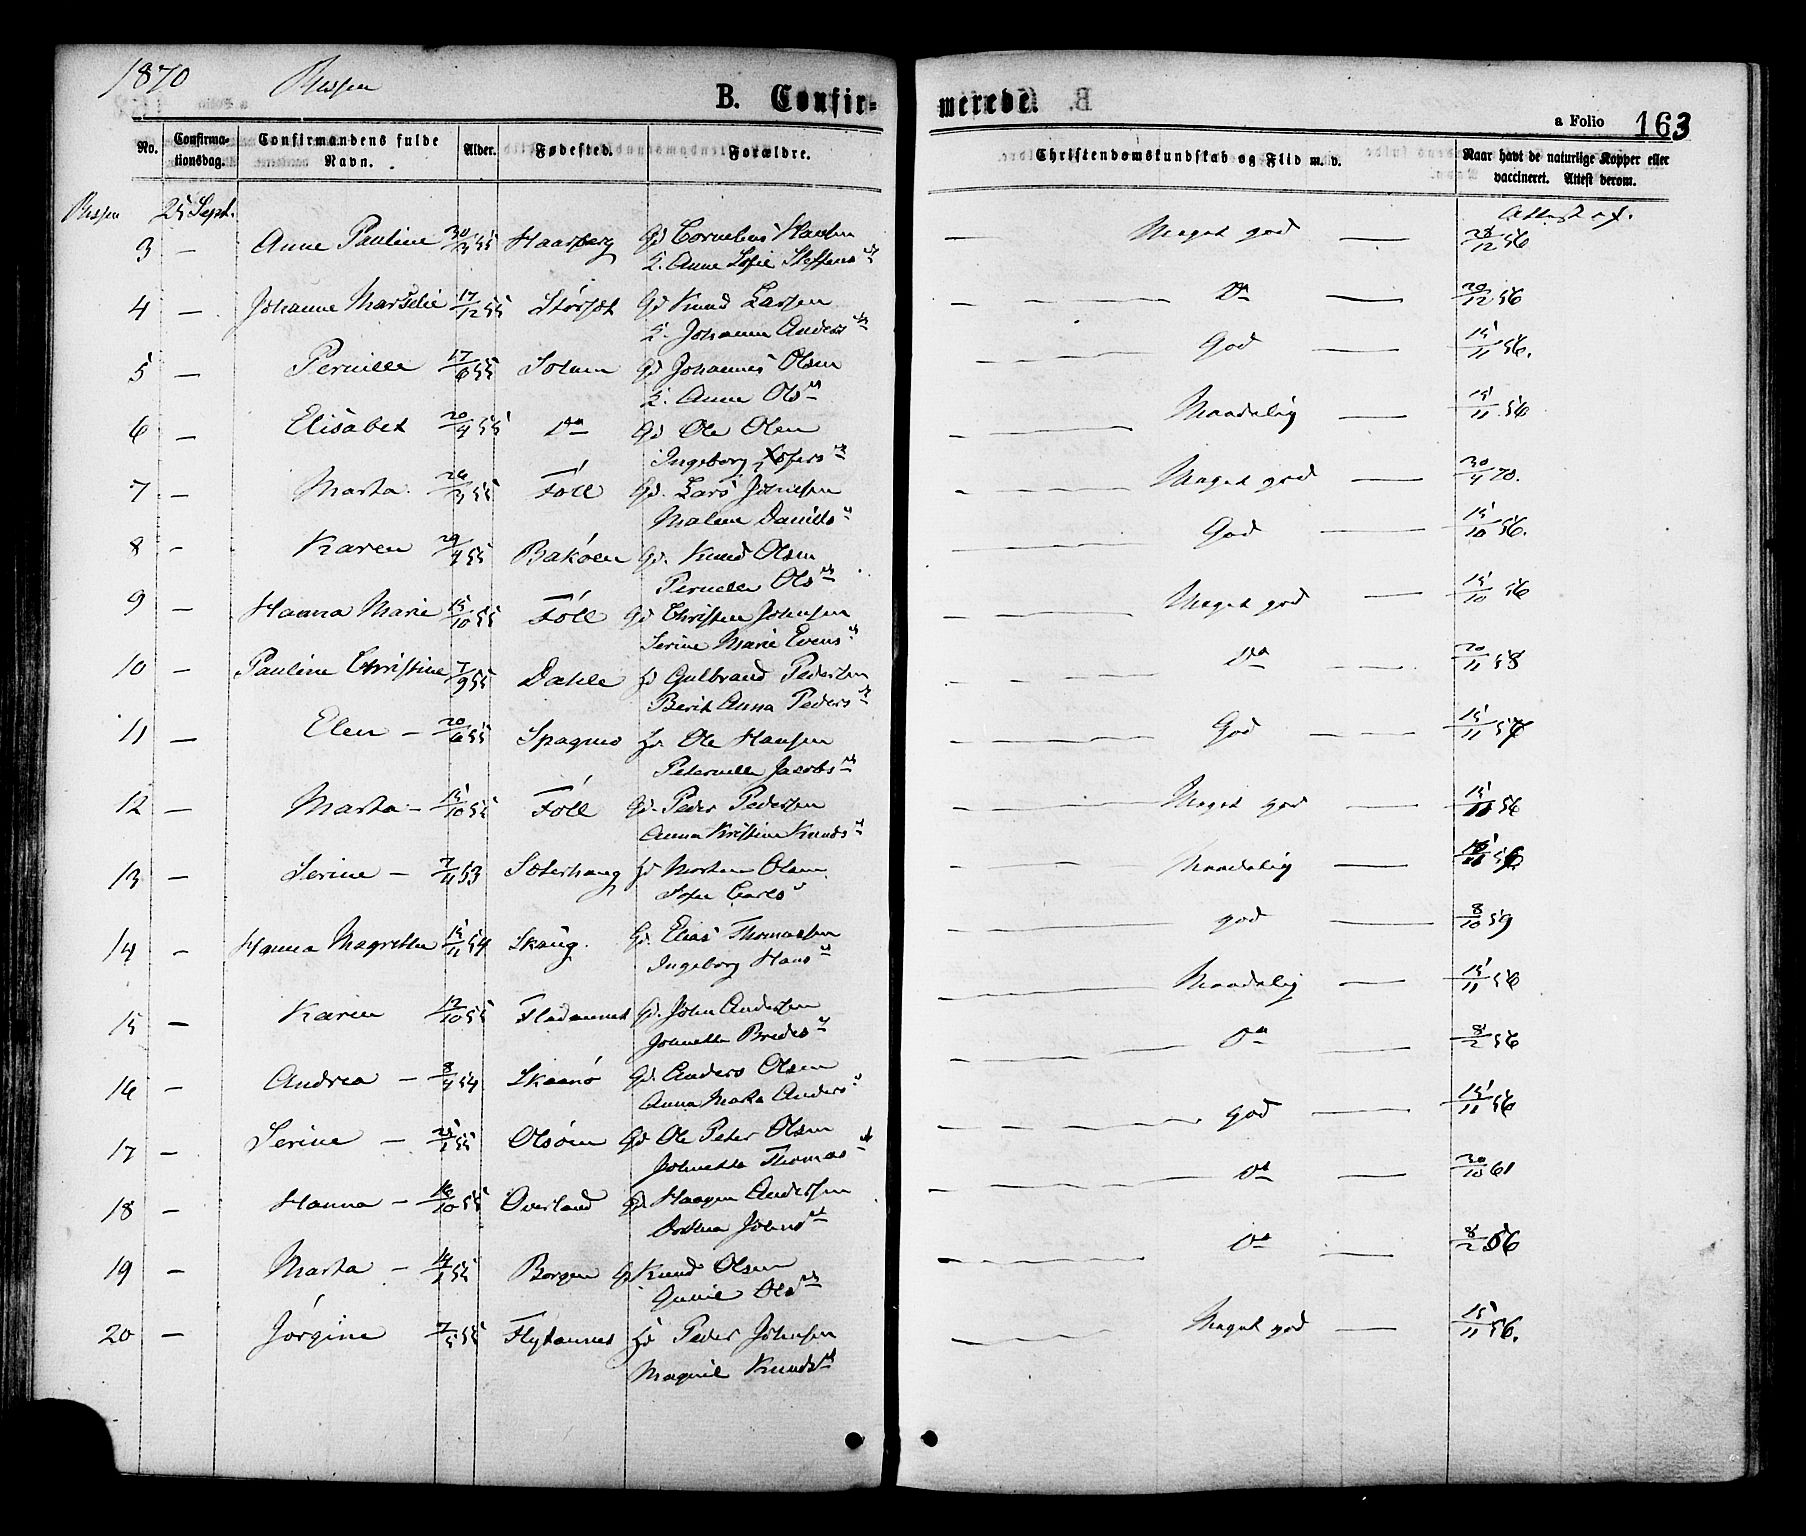 1870 Rissen
B. Confirmerede.
a Folio 163
No. Confirmationsdag. Confirmandens fulde Navn. Alder. Fødested. Forældre. Christendomskundskab og Flid m. v. Naar havt de naturlige Kopper eller vaccineret. Attest derom.
Rissen 25 Sept. Attest af.
3 — Anne Pauline 30/3 55 Haarberg Gd Cornelius — Meget god — 28/12 56
K. Anne Sofie Steffensd
4 — Johanne Marselie 17/12 55 Størset Gd Knud Larsen — Do — 20/12 56
K. Johanna Andersd
5 — Pernille 17/6 55 Solem Gd Johannes Olsen — God — 15/11 56.
K. Anne Olsd
6 — Elisabet 20/4 55 Do Gd Ole Olsen — Maadelig — 15/11 56
Ingeborg
7 — Marta 26/3 55 Föll Gd. Lars Johnsen — Meget god — 30/4 70.
Malene Danielsd
8 — Karen 29/4 55 Bakøen Gd. Knud Olsen — God — 15/10 56.
Pernille Olsd
9 — Hanna Marie 15/10 55 Föll Gd Christen Johnsen — Meget god — 15/10 56
Serine Marie Evensd
10 — Pauline Christine 7/9 55 Dahle Hd Gulbrand Pedersen — Do — 20/11 58
Berit Anna Pedersd
11 — Elen — 20/6 55 Spagmo Hd Ole Hansen — God — 15/11 57
Peternille Jacobsd
12 — Marta — 15/10 55 Föll Gd. Peder Pedersen — Meget god — 15/11 56
Anna Kristine Knudsd
13 — Serine — 7/11 53 Sæterhaug Hd Morten Olsen — Maadelig — 56
Sofie Carlsd
14 — Hanna Magrethe 15/11 54 Skaug. Gd. Elias Thomassen — god — 8/10 59
Ingeborg Hansd
15 — Karen 12/10 55 Fladannet Gd. John Andersen — Maadelig — 15/11 56
Johnetta Bredesd
16 — Andrea — 8/4 54 Skaanø Gd. Anders Olsen — Do — 8/2 56
Anna Marta Andersd
17 — Serine — 25/1 55 Olsøen Gd Ole Peter Olsen — god — 15/11 56
Johnetta Thomasd
18 — Hanna — 16/10 55 Overland Gd. Haagen Andersen — Do — 30/10 61
Dorthea Johnsd
19 — Marta — 14/1 55 Borgen Gd Knud Olsen — Do — 8/2 56
Gunil Olsd
20 — Jörgine 7/5 55 Flytannet Hd Peder Johnsen — Meget god — 15/11 56.
Magnil Knudsd